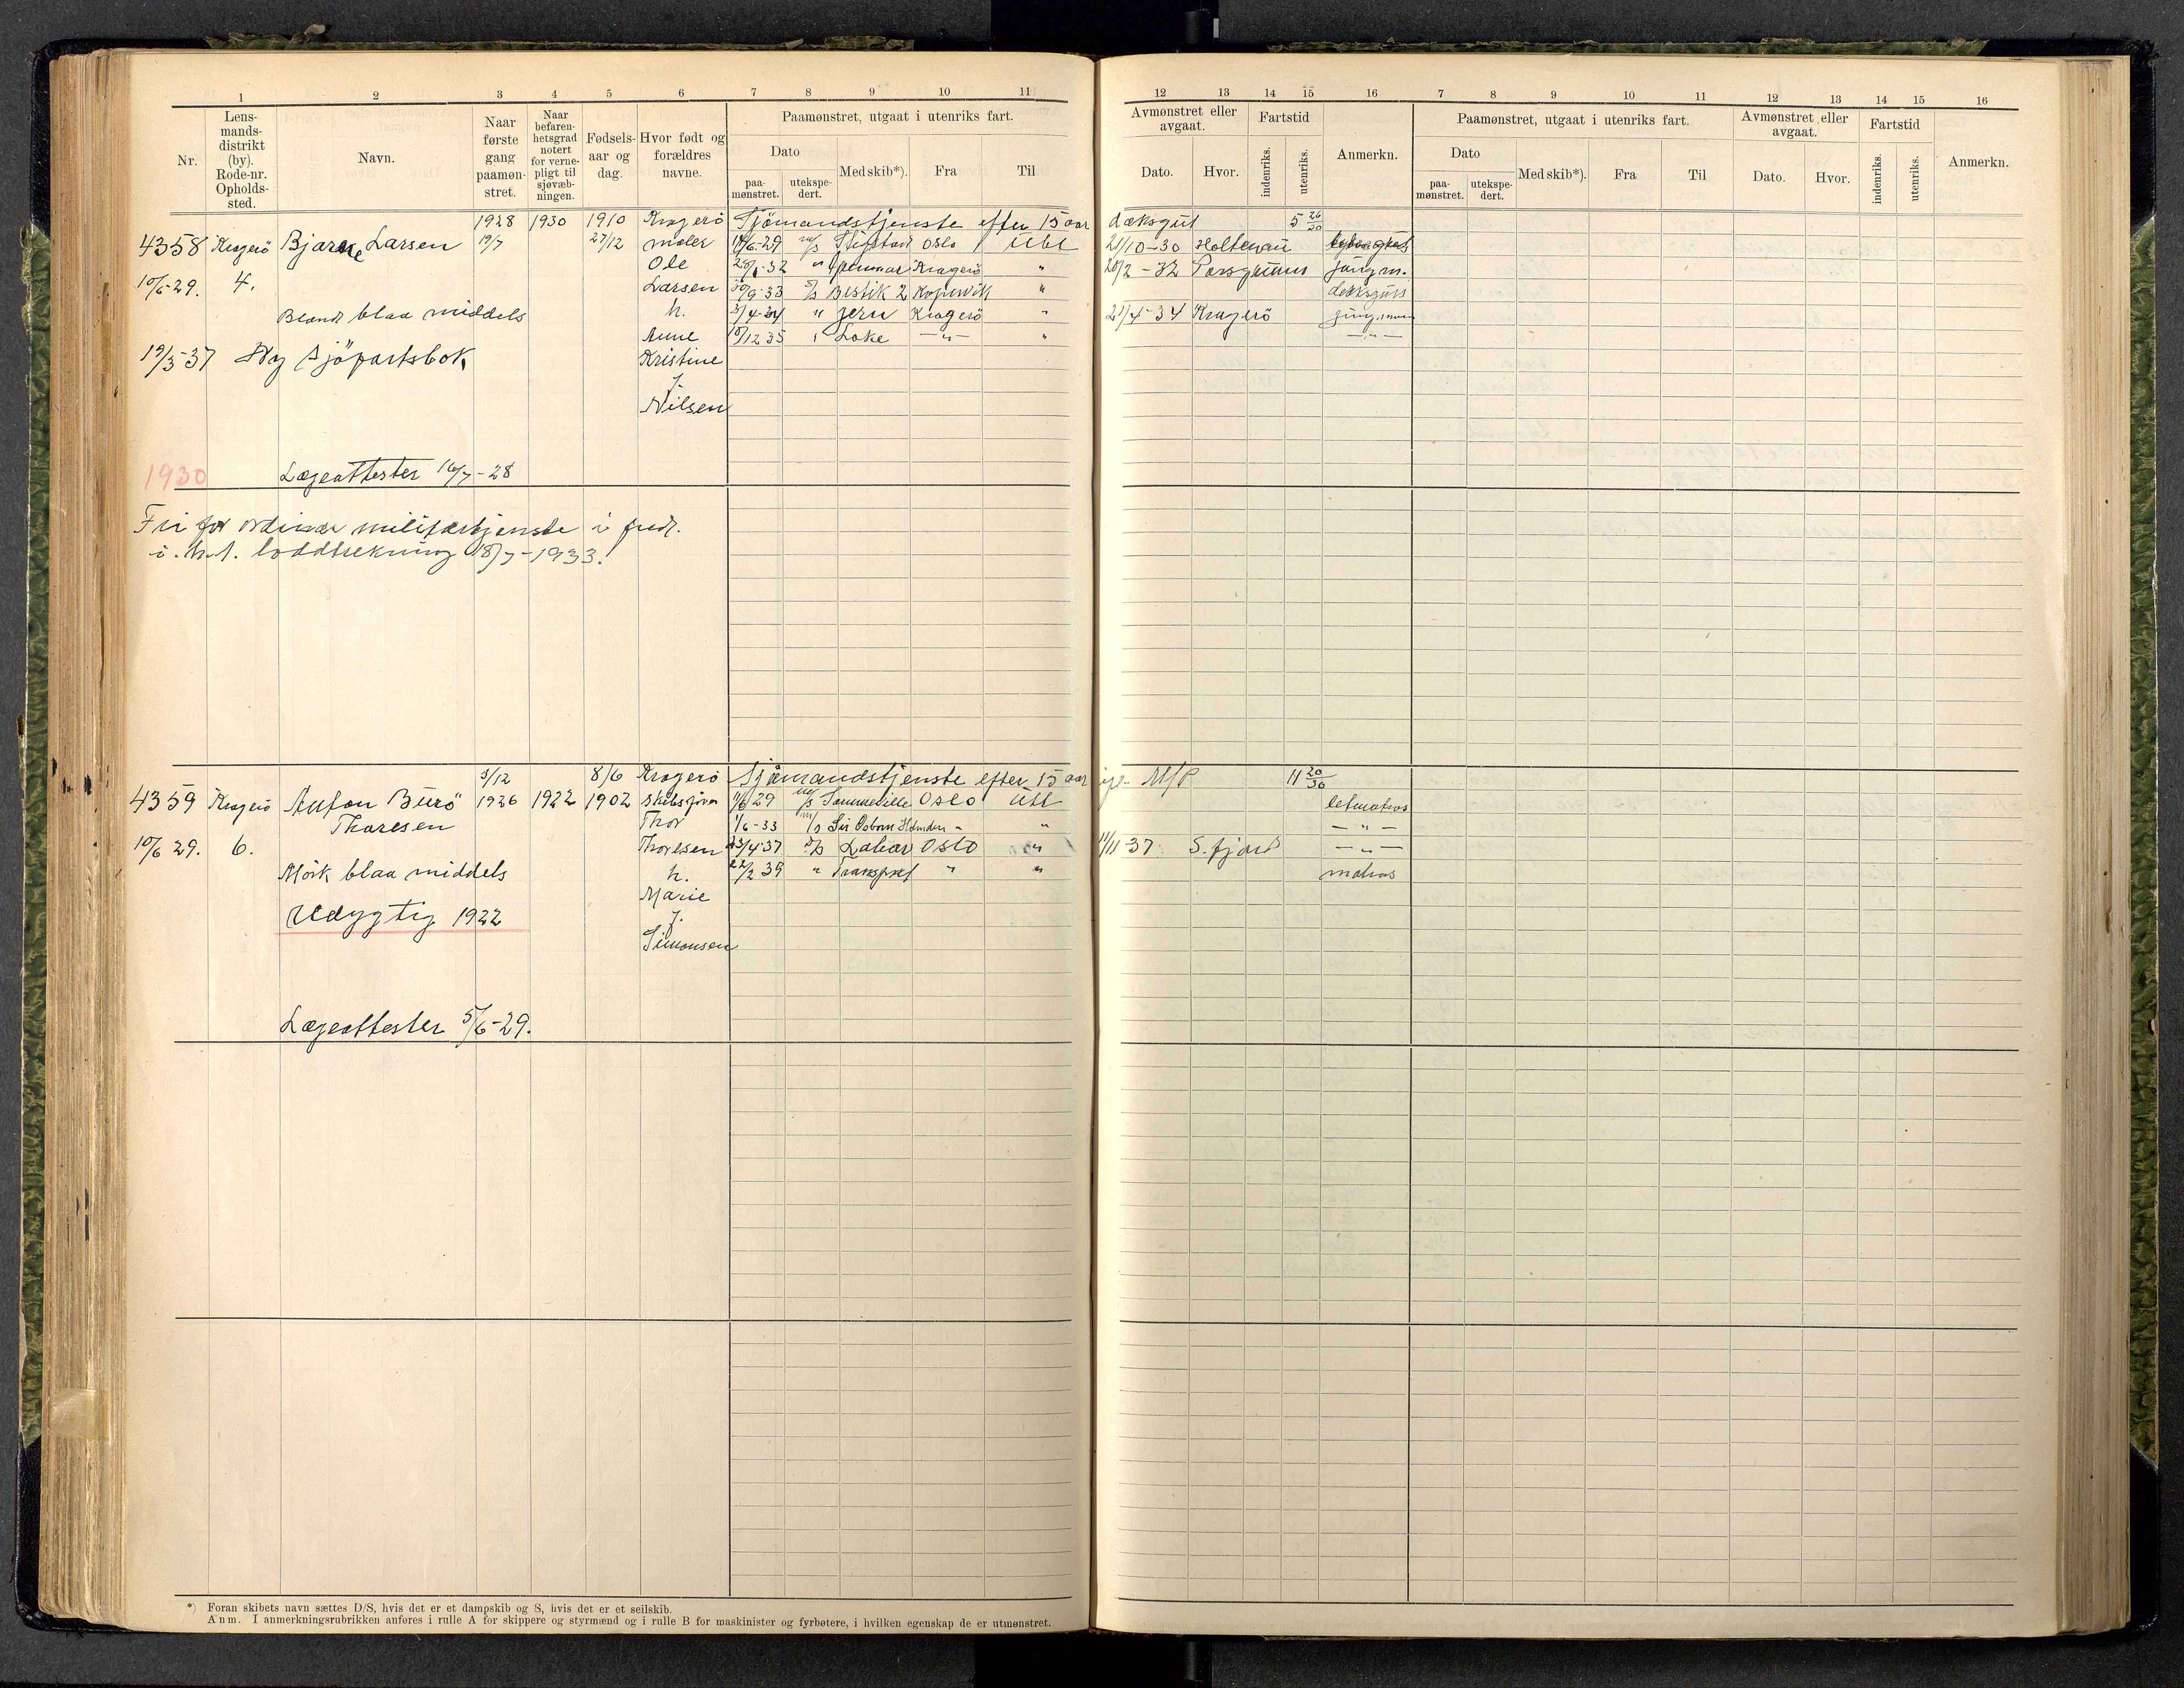 1 2 3 4 5 6 7 8 9 10 11
Nr.
Lens-
mands-
distrikt
(by).
Rode-nr.
Opholds-
sted.
Navn.
Naar
første
gang
paamøn-
stret.
Naar
befaren-
hetsgrad
notert
for verne-
pligt til
sjøvæb-
ningen.
Fødsels-
aar og
dag.
Hvor født og
forældres
navne.
Paamønstret, utgaat i utenriks fart.
Dato
paa-
mønstret.
utekspe-
dert.
Med skib*).
Fra
Til
1928 1930 1910 Kragerö Sjömandstjenste efter 15 aar
4358 Kragerö Bjarne Larsen 19/7 27/12 maler 14/6-29 m/s Oslo Utl
Ole 28/1-32 " Kragerö "
10/6-29. 4. Larsen 30/9-33 Bestik 2 Kopervik "
Blond blaa middels h. 3/4-34 " Jern Kragerö "
Anne 10/12 35 " Loke —"— "
19/3-37 Ny Sjöfartsbok Kristine
f.
Nilsen
1930 Lægeattester 16/7-28
Fri for ordinær militærtjenste i fred.
i. h. t. loddtrekning 18/7-1933.
3/12 8/6 Kragerö Sjömandstjenste efter 15 aar
4359 Kragerö Anton Burö 1926 1922 1902 11/6 29 m/s Oslo Utl
Thoresen Thor 1/6-33 m/s Sir Osborn Holmden " "
10/6 29. 6. Thoresen 23/4-37 Oslo "
Mörk blaa middels h. 22/2 39 " " "
Marie
Udygtig 1922 f.
Simonsen
Lægeattester 5/6-29.
*) Foran skibets navn sættes D/S, hvis det er et dampskib og S, hvis det er et seilskib.
Anm. I anmerkningsrubrikken anføres i rulle A for skippere og styrmænd og i rulle B for maskinister og fyrbøtere, i hvilken egenskap de er utmønstret.
12 13 14 15 16 7 8 9 10 11 12 13 14 15 16
Avmønstret eller
avgaat.
Dato.
Hvor.
Fartstid
indenriks.
utenriks.
Anmerkn.
Paamønstret, utgaat i utenriks fart.
Dato
paa-
mønstret.
utekspe-
dert.
Med skib*).
Fra
Til
Avmønstret eller
avgaat.
Dato.
Hvor.
Fartstid
indenriks.
utenriks.
Anmerkn.
dæksgut 5 26/30
21/10-30 Holtenau
20/2-32 Porsgrunn jungm.
dekksgutt
21/4-34 Kragerö jungmann
—"—
11 20/30
letmatros
—"—
11/11 37 S. fjord —"—
matros